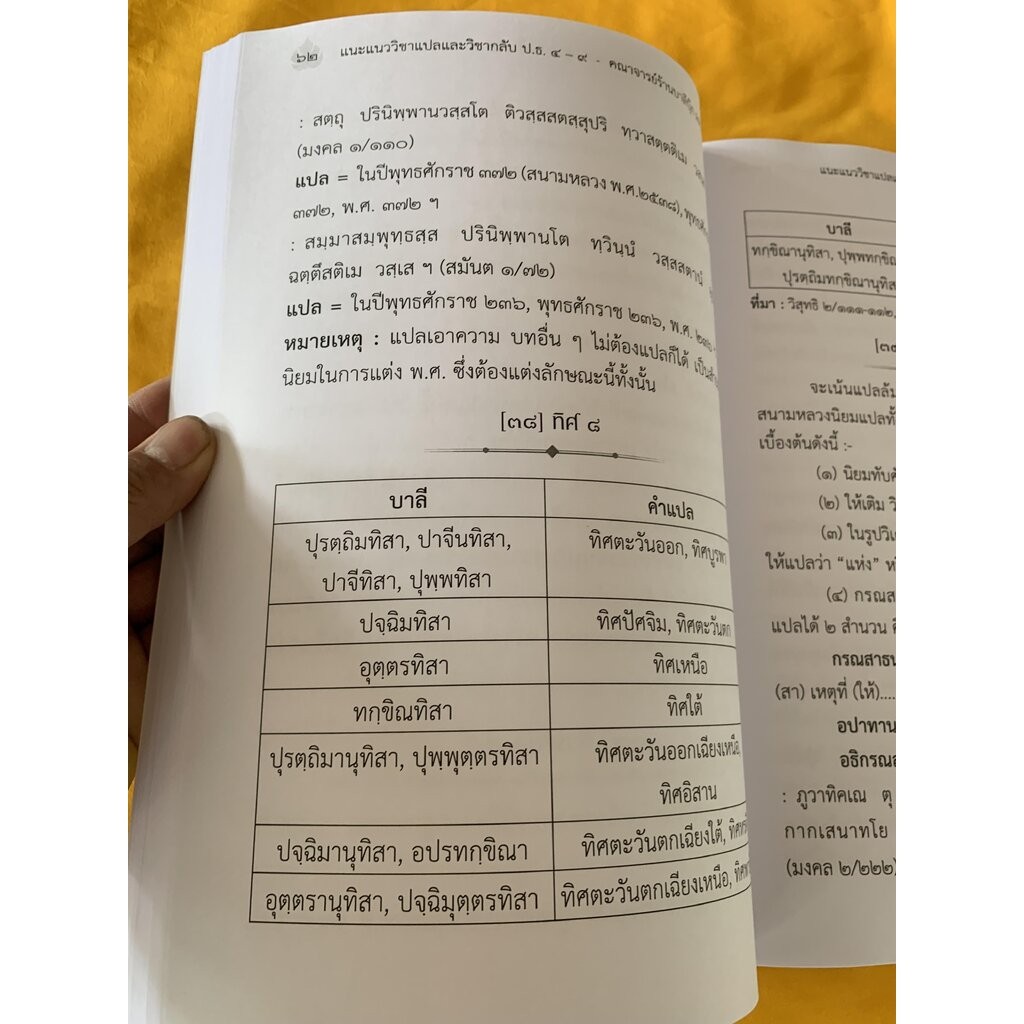 ๖๒ แนะแนววิชาแปลและวิชากลับ ป.ธ. ๔ – ๙ - คณาจารย์ร้านบาลี
: สตฺถุ ปรินิพฺพานวสฺสโต ติวสฺสสตสฺสุปริ ทฺวาสตฺตติเม
(มงคล ๑/๑๑๐)
แปล = ในปีพุทธศักราช ๓๗๒ (สนามหลวง พ.ศ.๒๕๓๘),
๓๗๒, พ.ศ. ๓๗๒ ฯ
: สมฺมาสมฺพุทฺธสฺส ปรินิพฺพานโต ทฺวินฺนํ วสฺสสตานํ
ฉตฺตึสติเม วสฺเส ฯ (สมันต ๑/๗๒)
แปล = ในปีพุทธศักราช ๒๓๖, พุทธศักราช ๒๓๖, พ.ศ. ๒๓๖
หมายเหตุ : แปลเอาความ บทอื่น ๆ ไม่ต้องแปลก็ได้
นิยมในการแต่ง พ.ศ. ซึ่งต้องแต่งลักษณะนี้ทั้งนั้น
[๓๘] ทิศ ๘
บาลี คำแปล
ปุรตฺถิมทิสา, ปาจีนทิสา, ทิศตะวันออก, ทิศบูรพา
ปาจีทิสา, ปุพฺพทิสา
ปจฺฉิมทิสา ทิศปัศจิม, ทิศตะวันตก
อุตฺตรทิสา ทิศเหนือ
ทกฺขิณทิสา ทิศใต้
ปุรตฺถิมานุทิสา, ปุพฺพุตฺตรทิสา ทิศตะวันออกเฉียงเหนือ,
ทิศอิสาน
ปจฺฉิมานุทิสา, อปรทกฺขิณา ทิศตะวันตกเฉียงใต้,
อุตฺตรานุทิสา, ปจฺฉิมุตฺตรทิสา ทิศตะวันตกเฉียงเหนือ,
แนะแนววิชาแปล
บาลี
ทกฺขิณานุทิสา,
ปุรตฺถิมทกฺขิณานุทิสา
ที่มา : วิสุทธิ ๒/๑๑๑-๑๑๒,
จะเน้นแปลล้ม
สนามหลวงนิยมแปลทั้
เบื้องต้นดังนี้ :-
(๑) นิยมทับศั
(๒) ให้เติม วิ
(๓) ในรูปวิเ
ให้แปลว่า “แห่ง”
(๔) กรณส
แปลได้ ๒ สำนวน
กรณสาธน
(สา) เหตุที่ (ให้)....
อปาทาน
อธิกรณส
: ภูวาทิคเณ ตุ
กากเสนาทโย
(มงคล ๒/๒๒๒)